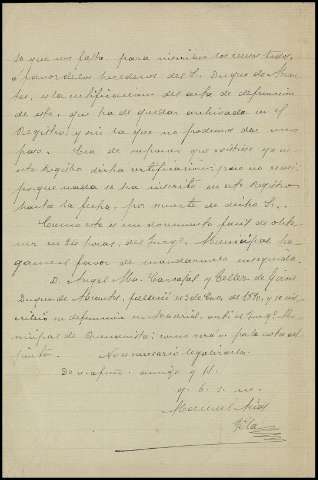 lo que nos falta para inscribir los censos todos,
a favor de los herederos del S. Duque de Abran-
tes, es la certificacion del acta de defuncion
de este, que ha de quedar archivada en el
Registro, y sin la que no podemos dar un
paso. Era de suponer que existiese ya en
este Registro dicha certificacion; pero no
porque nada se ha inscrito en este Registro
hasta la fecha, por muerte de dicho S.
Como este es un documento facil de obte-
ner en horas, del Juzg.º Municipal, ha-
game el favor de mandarmelo enseguida.
D. Angel Ma. Carvajal y Tellez de Giron
Duque de Abrantes, falleció el de de 1890, y se ins-
cribió su defuncion en Madrid, en el Juzg.º Mu-
nicipal de Buenavista: como verá en nota
No es necesario legalizarla.
De V. afmo. amigo y S.
q. b. s. m.
Manuel
Vila